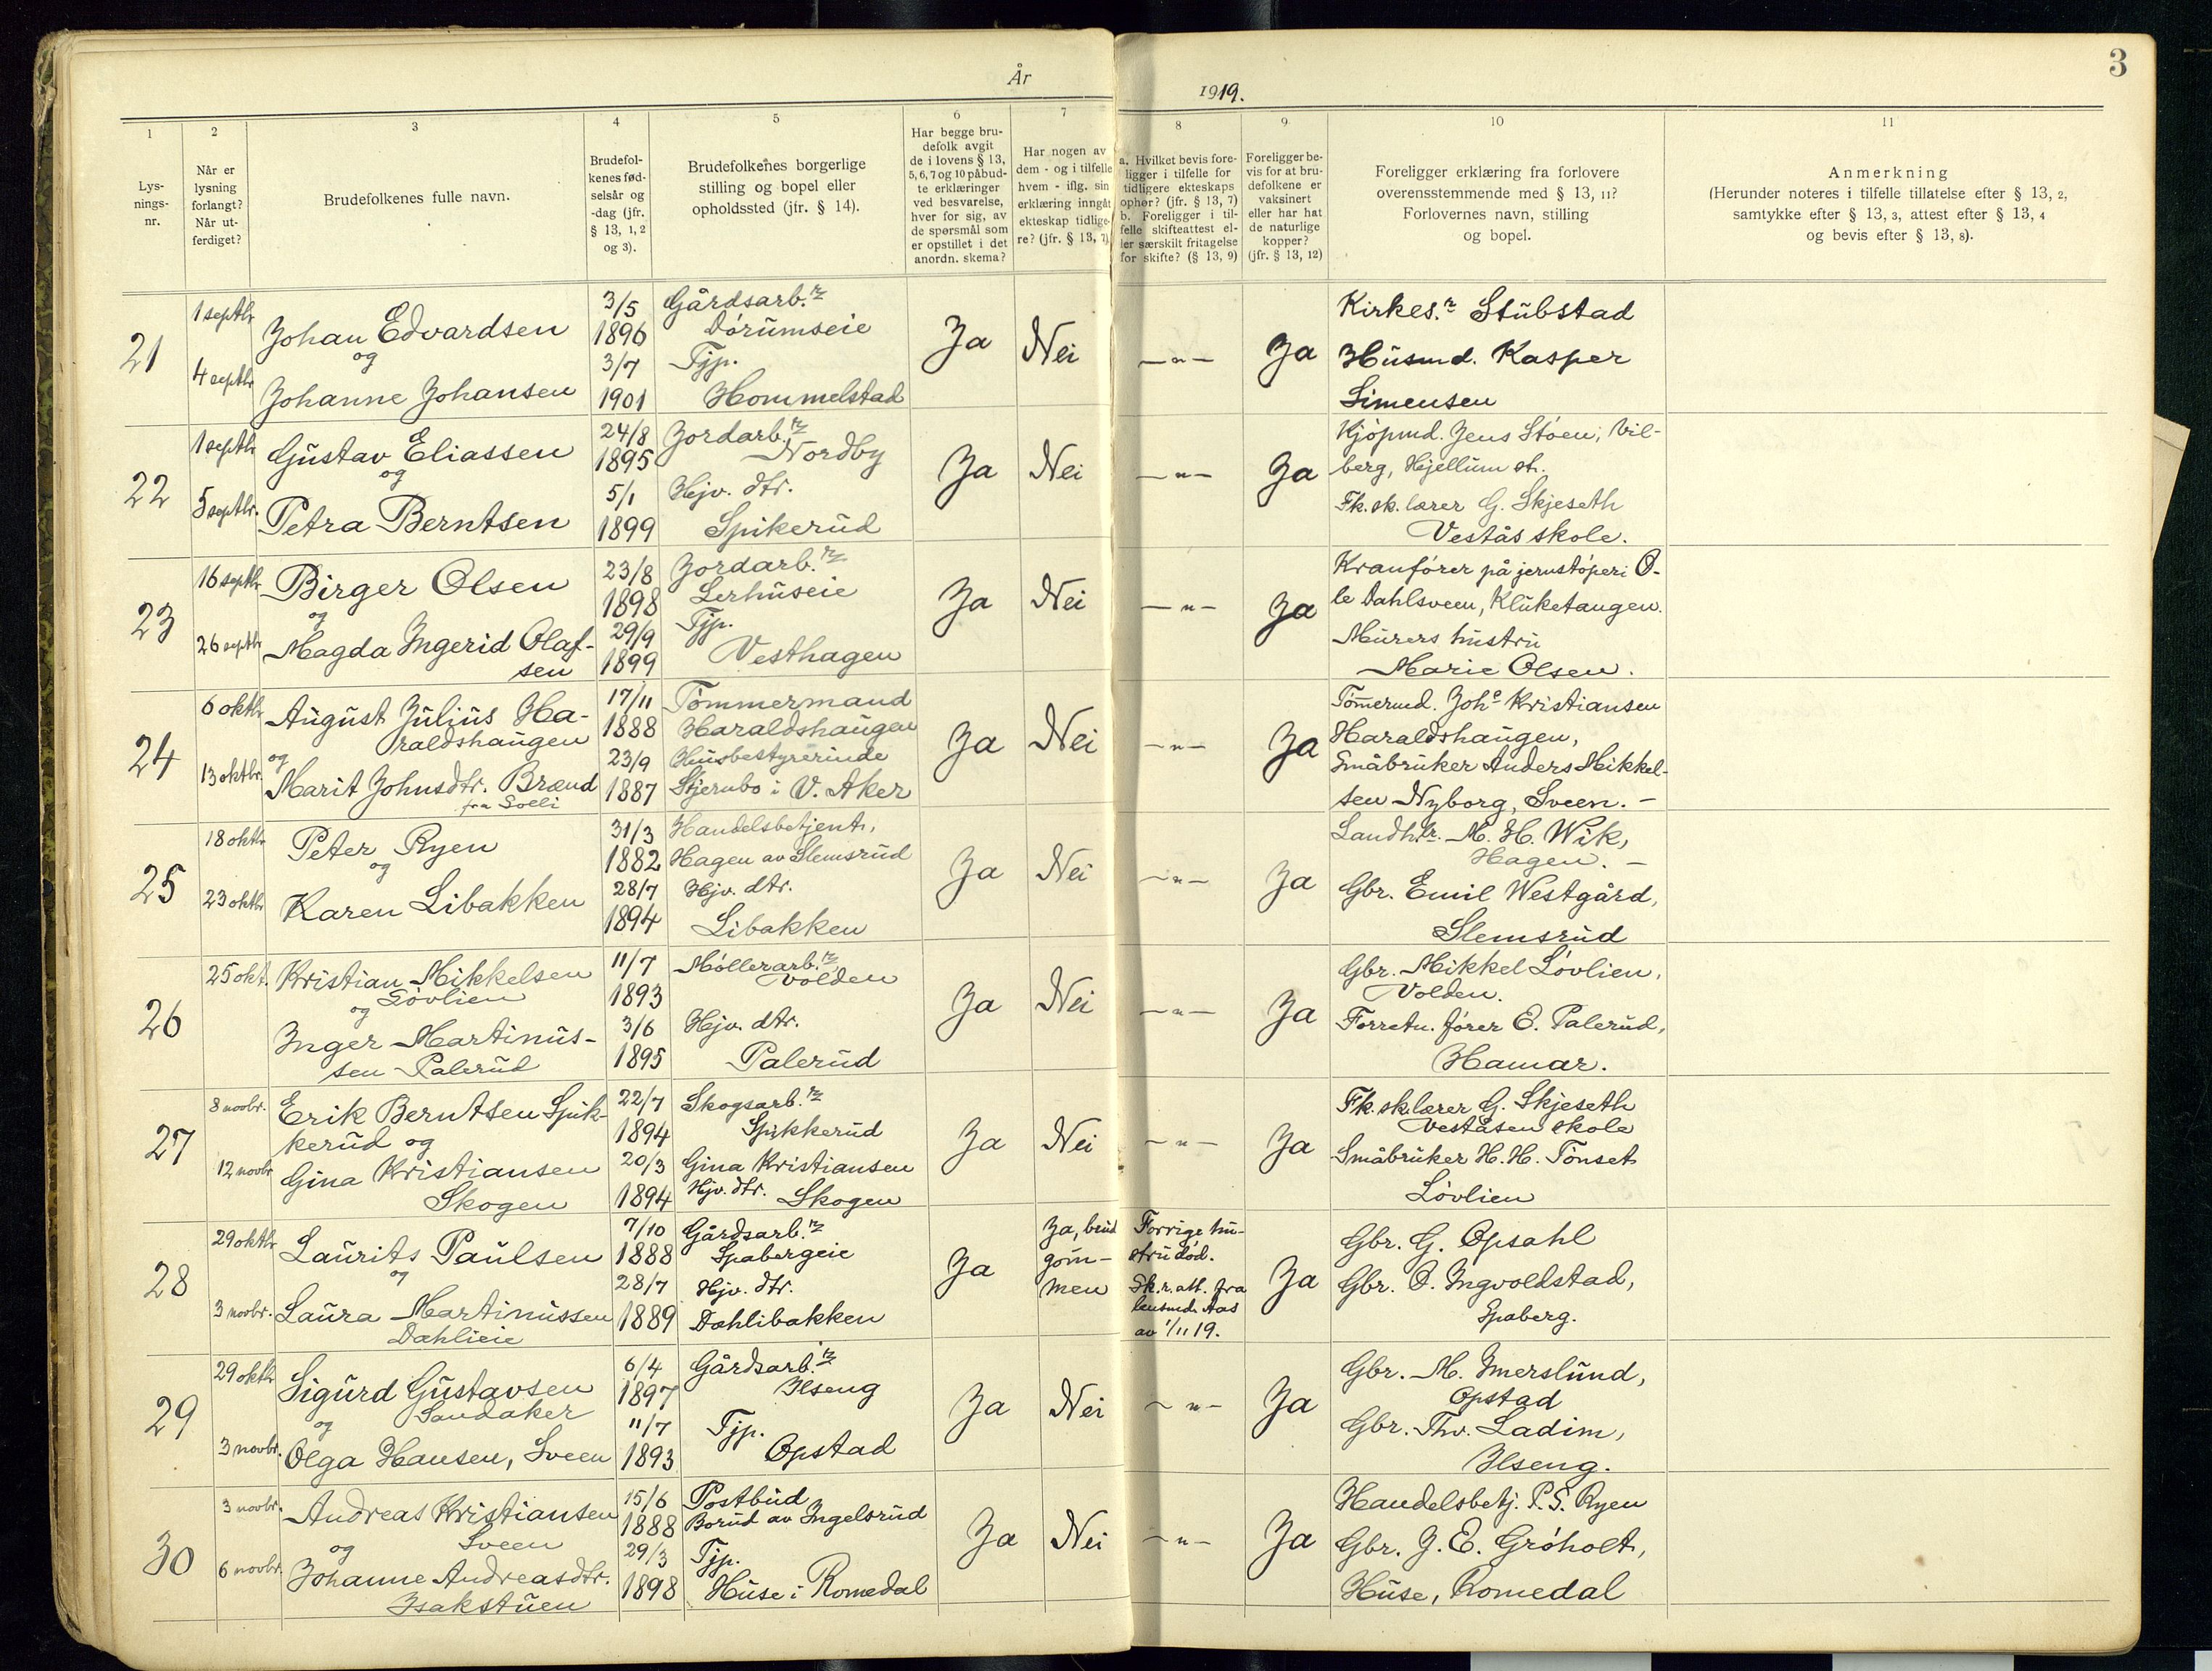 3
År 1919.
1
Lys-
nings-
nr.
2
Når er
lysning
forlangt?
Når ut-
ferdiget?
3
Brudefolkenes fulle navn.
4
Brudefol-
kenes fød-
selsår og
-dag (jfr.
§ 13, 1, 2
og 3).
5
Brudefolkenes borgerlige
stilling og bopel eller
opholdssted (jfr. § 14).
6
Har begge bru-
defolk avgit
de i lovens § 13,
5, 6, 7 og 10 påbud-
te erklæringer
ved besvarelse,
hver for sig, av
de spørsmål som
er opstillet i det
anordn. skema?
7
Har nogen av
dem - og i tilfelle
hvem - iflg. sin
erklæring inngåt
ekteskap tidlige-
re? (jfr. § 13, 7)
8
a. Hvilket bevis fore-
ligger i tilfelle for
tidligere ekteskaps
ophør? (jfr. § 13, 7)
b. Foreligger i til-
felle skifteattest el-
ler særskilt fritagelse
for skifte? (§ 13, 9)
9
Foreligger be-
vis for at bru-
defolkene er
vaksinert
eller har hat
de naturlige
kopper?
(jfr. § 13, 12)
10
Foreligger erklæring fra forlovere
overensstemmende med § 13, 11?
Forlovernes navn, stilling
og bopel.
11
Anmerkning
(Herunder noteres i tilfelle tillatelse efter § 13, 2,
samtykke efter § 13, 3, attest efter § 13, 4
og bevis efter § 13, 8).
21
1 septbr
4 septbr
Johan Edvardsen
og
Johanne Johansen
3/5
1896
3/7
1901
Gårdsarb.r
Dørumseie
Tjp.
Hommelstad
Ja
Nei
—"—
Ja
Kirkes.r Stubstad
Husmd. Kasper
Simensen
22
1 septbr
5 septbr.
Gustav Eliassen
og
Petra Berntsen
24/8
1895
5/1
1899
Jordarb.r
Nordby
Hjv. dtr.
Spikerud
Ja
Nei
—"—
Ja
Kjøpmd. Jens Støen, Vil-
berg, Hjellum st.
Fk. sk. lærer G. Skjeseth
Vestås skole.
23
16 septbr
26 septbr
Birger Olsen
og
Magda Ingerid Olaf-
sen
23/8
1898
29/9
1899
Jordarb.r
Lerhuseie
Tjp.
Vesthagen
Ja
Nei
—"—
Ja
Kranfører på jernstøperi O-
le Dahlsveen, Kluketangen.
Murers hustru
Marie Olsen.
24
6 oktbr
13 oktbr.
August Julius Ha-
raldshaugen
og
Marit Johnsdtr. Brænd
fra Solli
17/11
1888
23/9
1887
Tømmermand
Haraldshaugen
Husbestyrerinde
Stjernbo i V. Aker
Ja
Nei
—"—
Ja
Tømermd. Joh.s Kristiansen
Haraldshaugen,
Småbruker Anders Mikkel-
sen Nyborg, Sveen. —
25
18 oktbr
23 oktbr
Peter Ryen
og
Karen Libakken
31/3
1882
28/7
1894
Handelsbetjent,
Hagen av Slemsrud
Hjv. dtr.
Libakken
Ja
Nei
—"—
Ja
Landhlr. M. H. Wik,
Hagen. —
Gbr. Emil Westgård,
Slemsrud
26
25 okt.
Kristian Mikkelsen
Løvlien
og
Inger Martinus-
sen Palerud
11/7
1893
3/6
1895
Møllerarb.r
Volden
Hjv. dtr.
Palerud
Ja
Nei
—"—
Ja
Gbr. Mikkel Løvlien,
Volden.
Forretn. fører E. Palerud,
Hamar.
27
8 novbr.
12 novbr
Erik Berntsen Spik-
kerud og
Gina Kristiansen
Skogen
22/7
1894
20/3
1894
Skogsarb.r
Spikkerud
Gina Kristiansen
Hjv. dtr. Skogen
Ja
Nei
—"—
Ja
Fk. sk. lærer G. Skjeseth
Veståsen skole
Småbruker H. H. Tønset
Løvlien
28
29 oktbr
3 novbr.
Laurits Paulsen
og
Laura Martinussen
Dahlieie
7/10
1888
28/7
1889
Gårdsarb.r
Spabergeie
Hjv. dtr.
Dahlibakken
Ja
Ja, brud
gom-
men
Forrige hu-
stru død.
Sk.r. att. fra
lensmd. Aas
av 1/11 19.
Ja
Gbr. G. Opsahl
Gbr. O. Ingvoldstad,
Spaberg.
29
29 oktbr
3 novbr.
Sigurd Gustavsen
Sandaker
og
Olga Hansen, Sveen
6/4
1897
11/7
1893
Gårdsarb.r
Ilseng
Tjp.
Opstad
Ja
Nei
—"—
Ja
Gbr. M. Imerslund,
Opstad
Gbr. Thv. Ladim,
Ilseng.
30
3 novbr.
6 novbr.
Andreas Kristiansen
Sveen
og
Johanne Andreasdtr.
Isakstuen
15/6
1888
29/3
1898
Postbud
Borud av Ingelsrud
Tjp.
Huse i Romedal
Ja
Nei
—"—
Ja
Handelsbetj. P. S. Ryen
Gbr. J. E. Grøholt,
Huse, Romedal